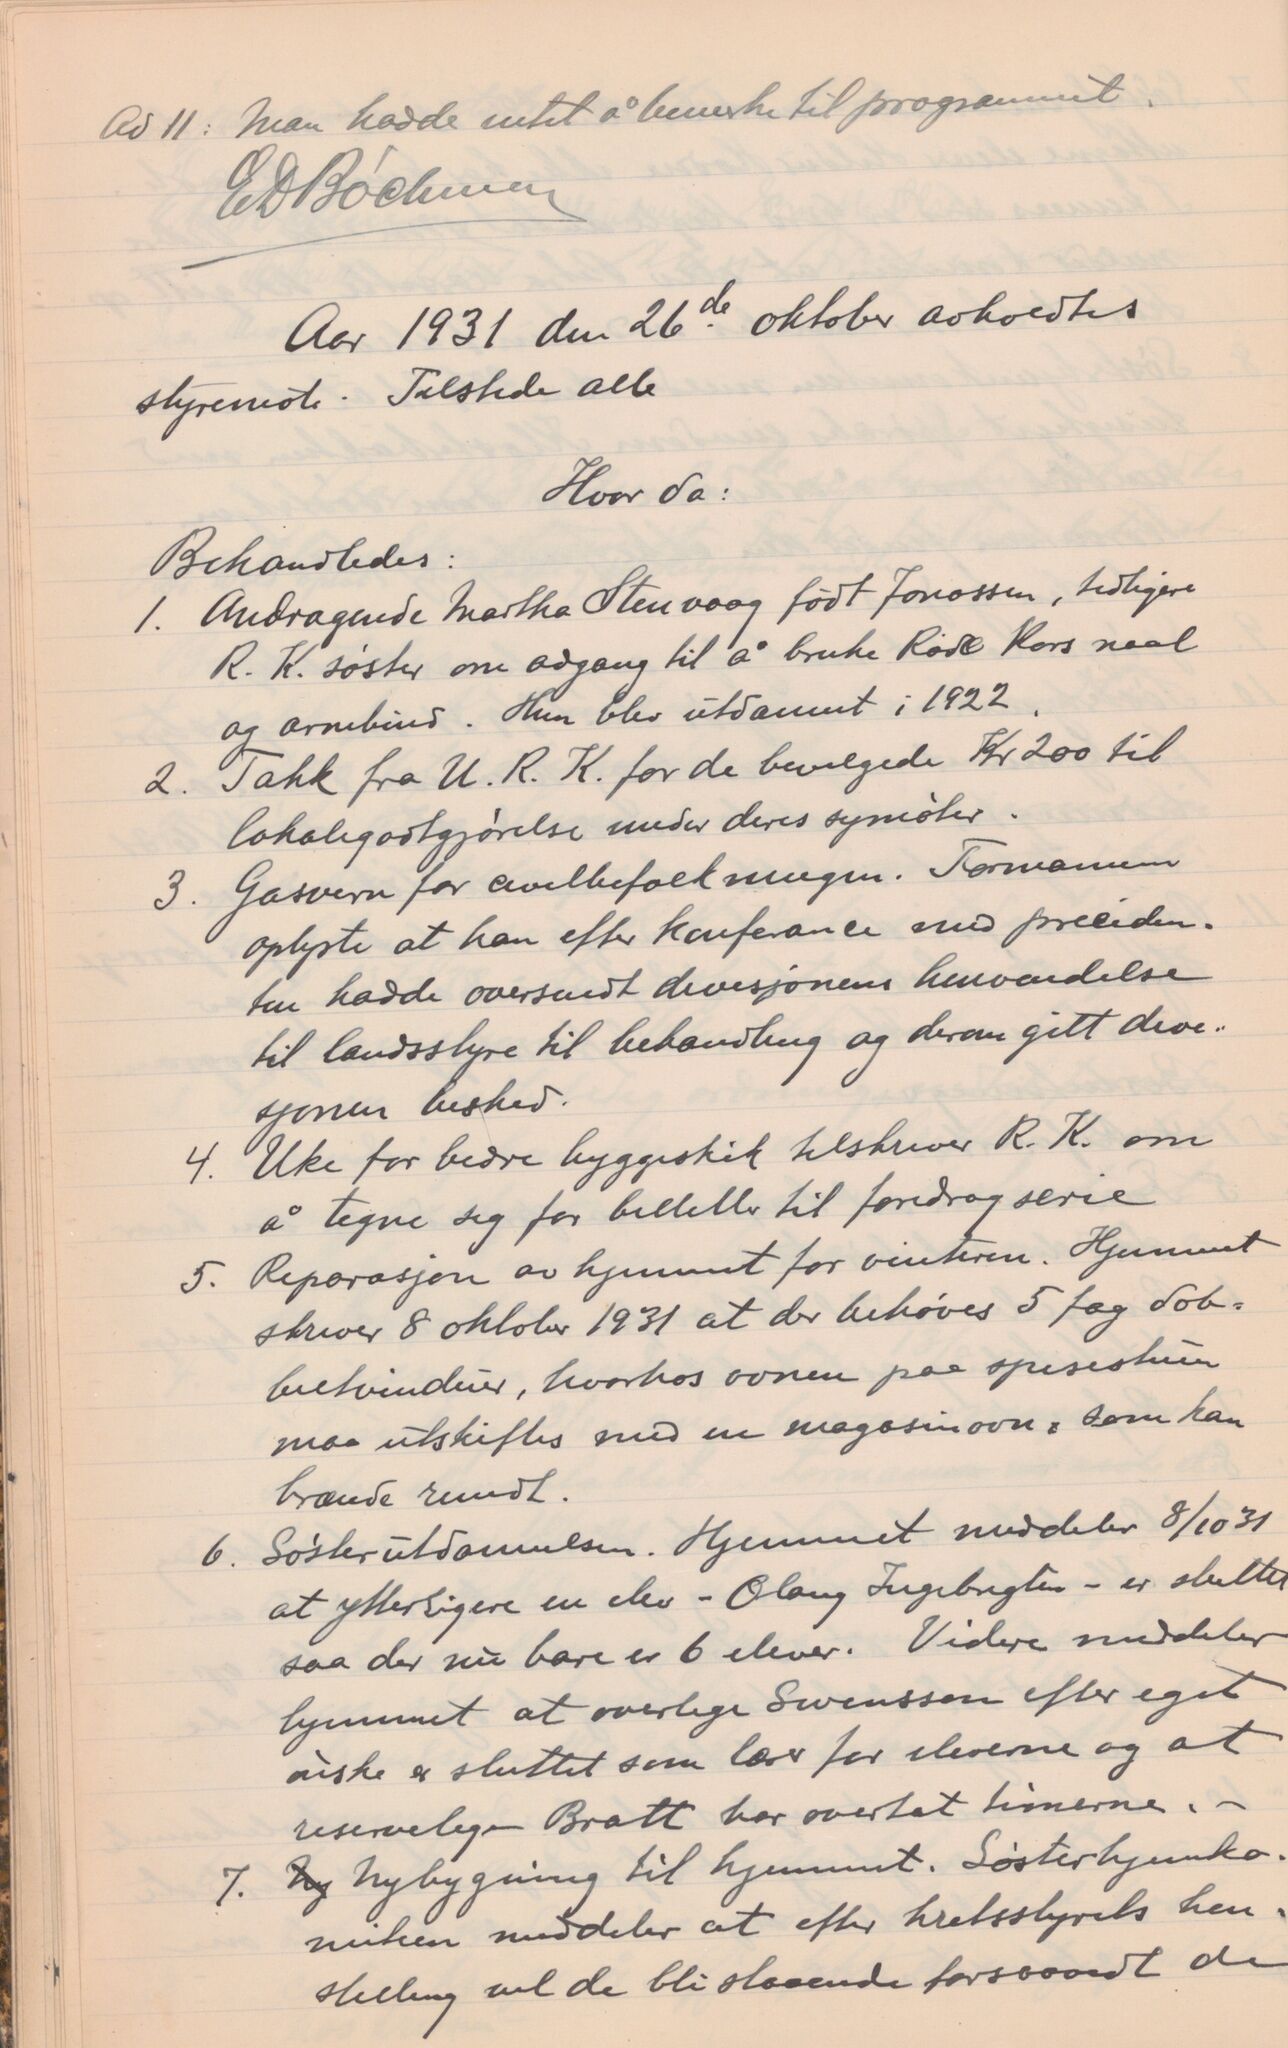 Ad 11: Man hadde intet å bemerke til programmet.
ED Bóchman
Aar 1931 den 26de oktober avholdtes
styremöte. Tilstede alle
Hvor da:
Behandledes:
1. Andragende Martha Stenvaag födt Jonassen, tidligere
R. K. söster om adgang til å bruke Röde Kors naal
og armbind. Hun blev utdannet i 1922.
2. Takk fra U. R. K. for de bevilgede Kr 200 til
lokalegodtgjörelse under deres symöter.
3. Gasvern for civilbefolkningen. Formannen
oplyste at han efter konferance med presiden-
ten hadde oversendt divisjonens henvendelse
til landsstyre til behandling og derom gitt divi-
sjonen besked.
4. Uke for bedre byggeskik tilskriver R. K. om
å tegne sig for billetter til foredragserie
5. Reparasjon av hjemmet for vinteren. Hjemmet
skriver 8 oktober 1931 at der behöves 5 fag dob-
beltvinduer, hvorhos ovnen paa spisestuen
maa utskiftes med en magasinovn, som kan
brænde rundt.
6. Sösterutdannelsen. Hjemmet meddeler 8/10 31
at ytterligere en elev - Olaug Ingebrigtsen - er sluttet
saa der nu bare er 6 elever. Videre meddeler
hjemmet at overlege Svensson efter eget
önske er sluttet som lærer for eleverne og at
reservelege Bratt har overtat timerne. -
7. Ny Nybygning til hjemmet. Sösterhjemko-
miteen meddeler at efter kretsstyrets hen-
stilling vil de bli staaende forsaavidt de